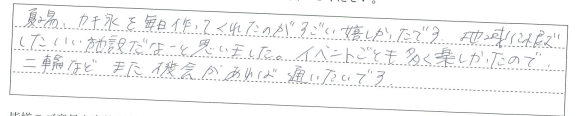 夏場、カキ氷を毎日作ってくれたのがすごい嬉しかったです 地域に根ざ
したいい施設だなーと思いました。イベントごとも多く楽しかったので、
二輪など また機会があれば通いたいです